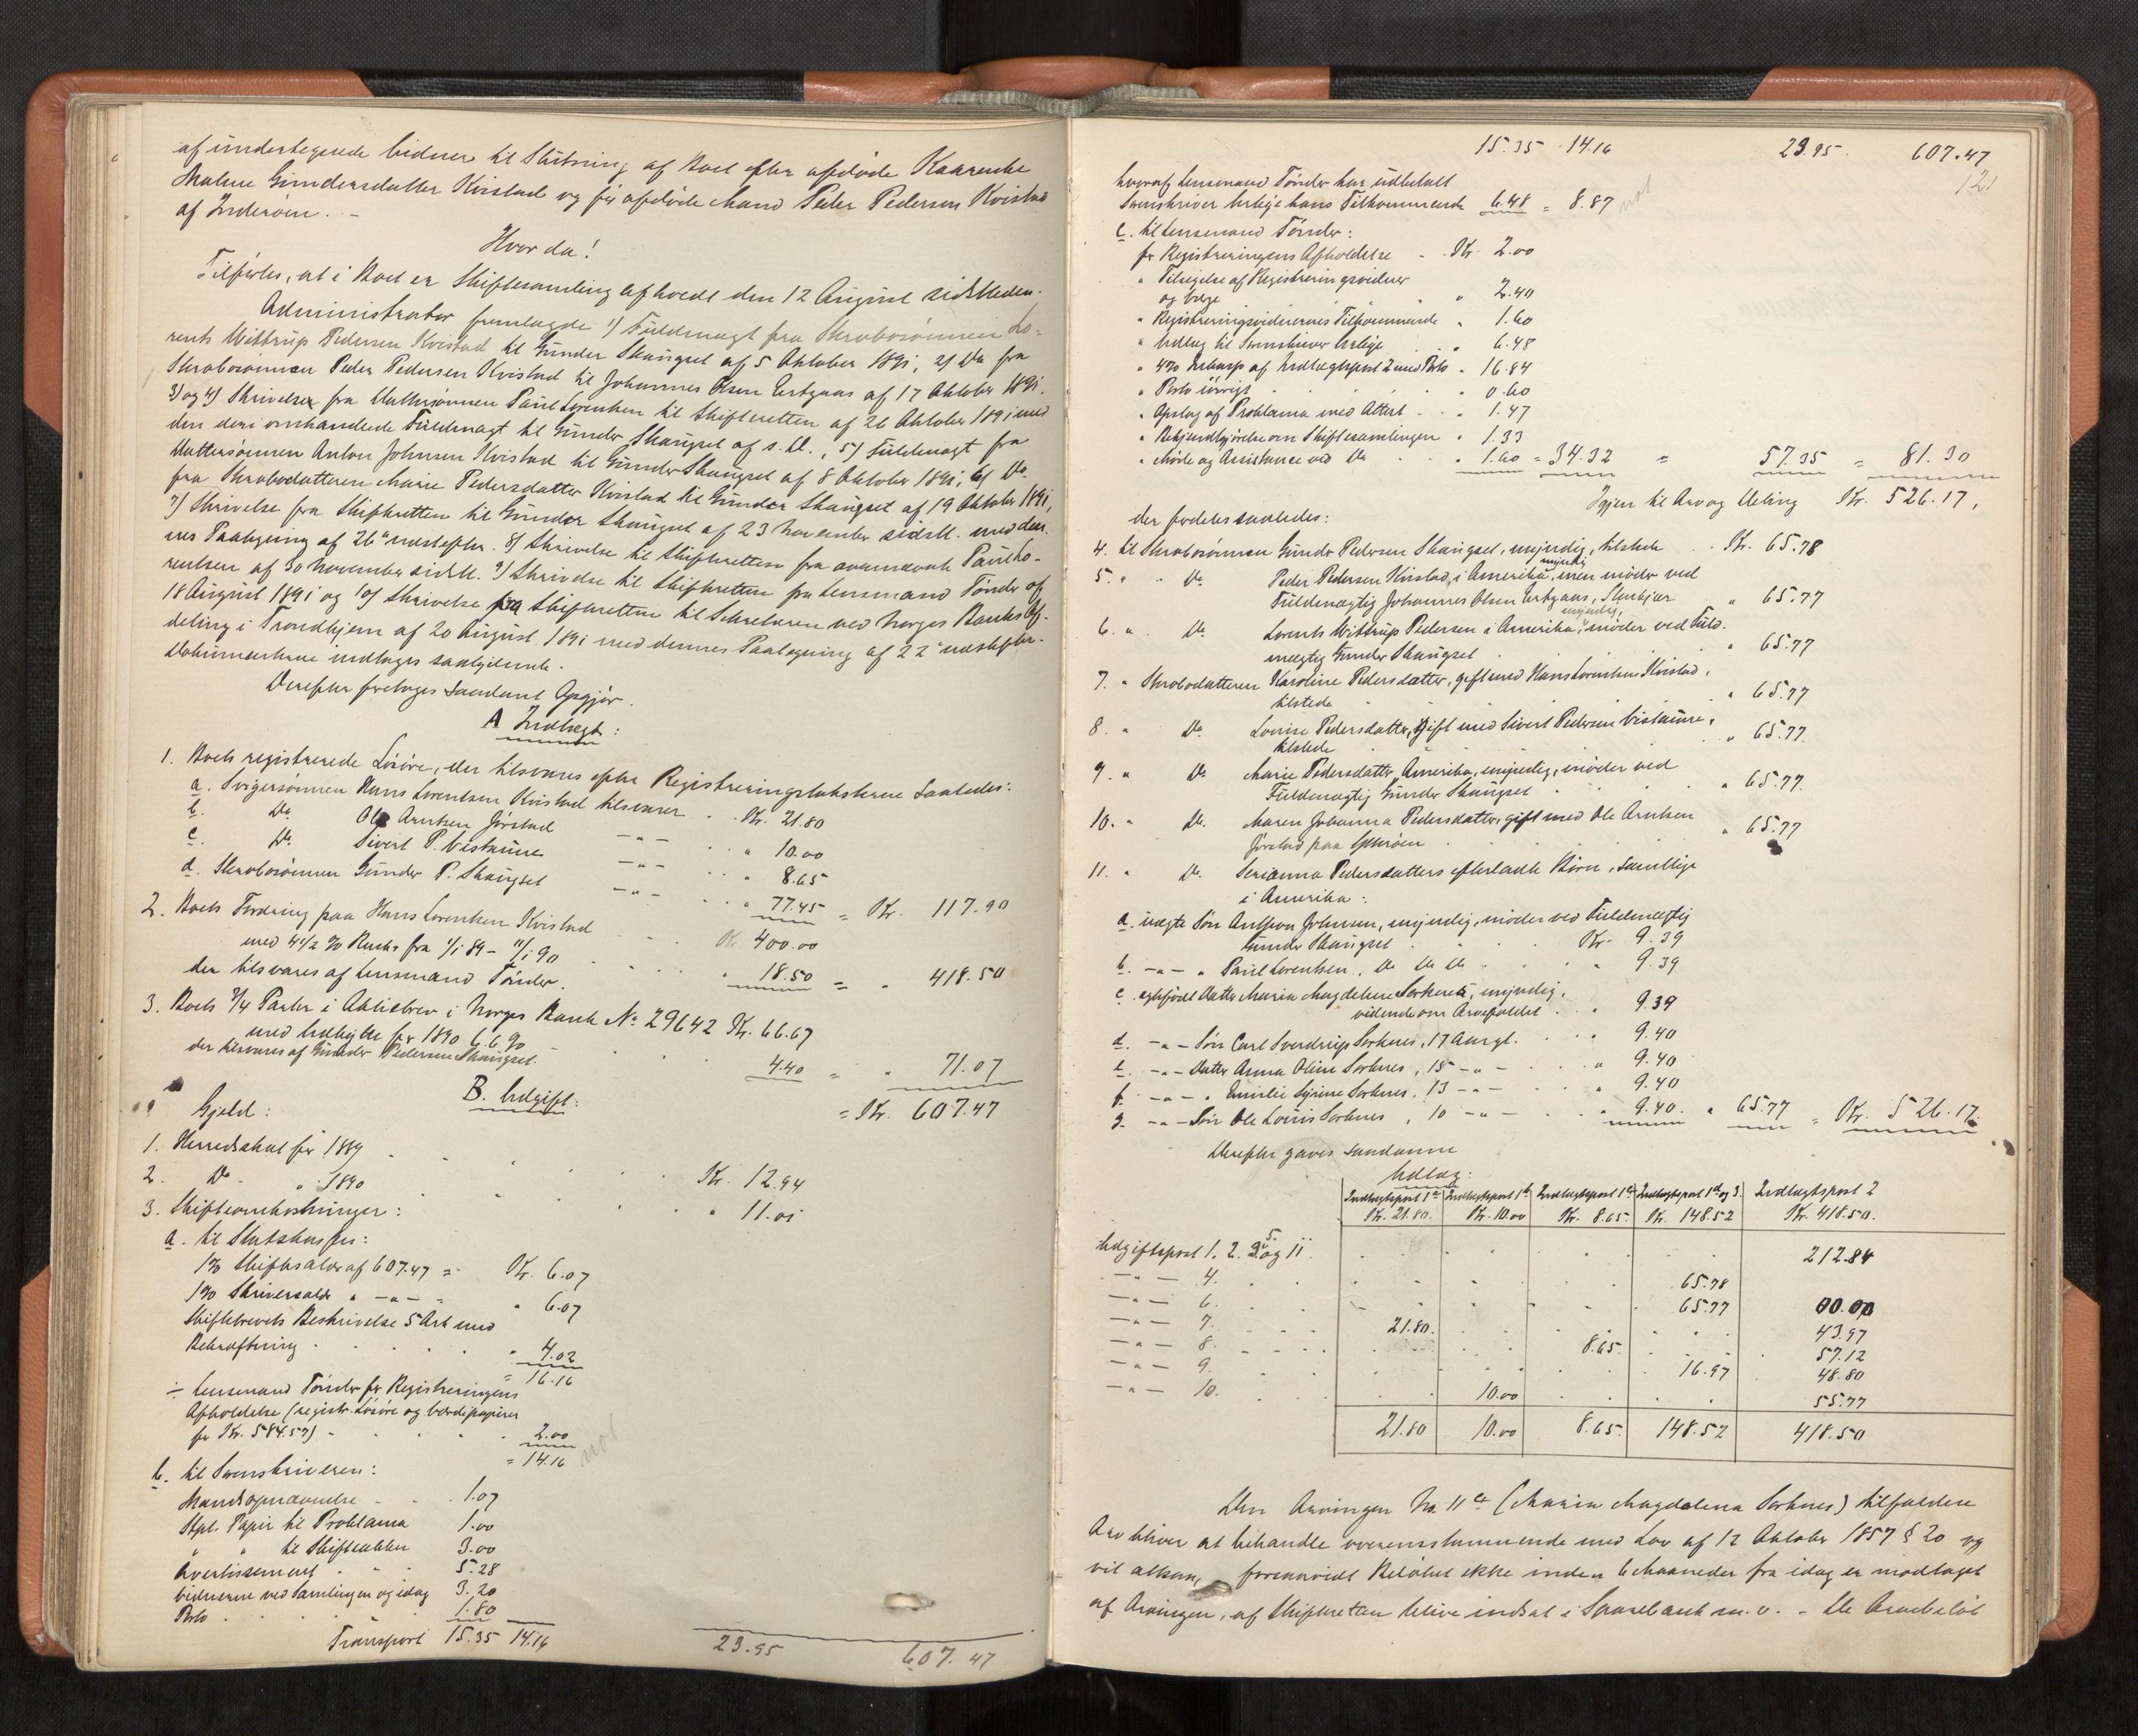 af undertegnede Vidner til Slutning af Boet efter afdøde Kaarenke
Malene Gundersdatter Kvistad og før afdøde Mand Peder Pedersen Kvistad
af Inderøen. –
Hvor da!
Tilførtes, at i Boet er Skiftesamling afholdt den 12 August sidstleden.
Administrator fremlagde 1) Fuldmagt fra Skrabosønnen Lo-
rents Wittrup Pedersen Kvistad til Gunder Skaugset af 5 Oktober 1891, 2) Do fra
Skrabosønnen Peder Pedersen Kvistad til Johannes Olsen af 17 Oktober 1891.
3) og 4) Skrivelse fra Dattersønnen Paul Lorentsen til Skifteretten af 26 Oktober 1891 med
den deri omhandlede Fuldmagt til Gunder Skaugset af s. D., 5) Fuldmagt fra
Dattersønnen Anton Johnsen Kvistad til Gunder Skaugset af 8 Oktober 1891, 6) Do
fra Skrabodatteren Marie Pedersdatter Kvistad til Gunder Skaugset af 19 Oktober 1891,
7) Skrivelse fra Skifteretten til Gunder Skaugset af 23 November sidstl. med den-
nes Paategning af 26de næstefter. 8) Skrivelse til Skifteretten fra ovennævnte Paul Lo-
rentsen af 30 November sidstl. 9) Skrivelse til Skifteretten fra Lensmand Tønder af
18 August 1891 og 10) Skrivelse fra Skifteretten til Sekretæren ved Norges Banks Af-
deling i Trondhjem af 20 August 1891 med dennes Paategning af 22de næstefter.
Dokumenterne indtages saalydende.
Derefter foretoges saadant Opgjør.
A Indtægt:
1. Boets registrerede Løsøre, der tilsvares efter Registreringstaksterne saaledes:
a. Svigersønnen Hans Lorentsen Kvistad tilsvarer . . Kr. 21.80
b. Do Ole Arntsen Jørstad – " – . . " 10.00
c. Do Sivert P. Vistaune – " – . . " 8.65
d. Skrabosønnen Gunder P. Skaugset – " – . . " 77.45 = Kr. 117.90
2. Boets Fordring paa Hans Lorentsen Kvistad . . Kr. 400.00
med 4 1/2 % Renter fra 1/1 89 – 11/1 90 . . " 18.50 = " 418.50
der tilsvares af Lensmand Tønder.
3. Boets 3/4 Parter i Aktiebrev i Norges Bank No 29642 Kr. 66.67
med Udbytte for 1890 6.6 % . . 4.40 = " 71.07
der tilsvares af Gunder Pedersen Skaugset.
= Kr. 607.47
B. Udgift:
Gjeld:
1. Herredsskat for 1889 . . Kr. 12.94
2. Do " 1890 . . " 11.01
3. Skifteomkostninger:
a. til Statskassen:
1% Skiftesalær af 607.47 = Kr. 6.07
1% Skriversalær " – " – = " 6.07
Skiftebrevets Beskrivelse 5 Ark med
Bekræftning . . " 4.02
= 16.16
÷ Lensmand Tønder for Registreringens
Afholdelse (registr. Løsøre og Værdipapirer
for Kr. 584.57) . . 2.00
= 14.16
b. til Sorenskriveren:
Mandsopnævnelse . . 1.07
Stpl. Papir til Proklama 1.00
" " til Skifteakten 3.00
Avertissement . . 5.28
Vidnerne ved Samlingen og idag 3.20
Porto . . 1.80
Transport 15.35 14.16 23.95 607.47
15.35 14.16 23.95. 607.47
121
hvoraf Lensmand Tønder har udbetalt
Sorenskriver hans Tilkommende 6.48 = 8.87
c. til Lensmand Tønder:
for Registreringens Afholdelse . . Kr. 2.00
" Tilsigelse af Registreringsvidner
og Værge " 2.40
" Registreringsvidnernes Tilkommende " 1.60
" Udlæg til Sorenskriver " 6.48
" 4% Inkasso af Indtægtspost 2 med Porto " 16.84
" Porto iøvrigt " 0.60
" Opslag af Proklama med Attest . . " 1.47
" Bekjendtgjørelse om Skiftesamlingen " 1.33
" Møde og Assistance ved Do . . " 1.60 = 34.32 = 57.35 = 81.30
Igjen til Arv og Deling Kr. 526.17,
der fordeles saaledes:
4. til Skrabosønnen Gunder Pedersen Skaugset, myndig, tilstede . Kr. 65.78
5. " " Do Peder Pedersen Kvistad, myndig, i Amerika, men møder ved
Fuldmægtig Johannes Olsen , Stenkjær " 65.77
6. " Do Lorents Wittrup Pedersen i Amerika, myndig, møder ved Fuld-
mægtig Gunder Skaugset " 65.77
7. " Skrabodatteren Karoline Pedersdatter, gift med Hans Lorentsen Kvistad,
tilstede " 65.77
8. " Do Louise Pedersdatter, gift med Sivert Pedersen Vistaune,
tilstede " 65.77.
9. " Do Marie Pedersdatter, Amerika, myndig, møder ved
Fuldmægtig Gunder Skaugset " 65.77.
10. " Do. Maren Johanna Pedersdatter, gift med Ole Arntsen
Jørstad paa Ytterøen " 65.77
11. " Do Serianna Pedersdatters efterladte Børn, samtlige
i Amerika:
a. uægte Søn Anthon Johnsen, myndig, møder ved Fuldmægtig
Gunder Skaugset Kr. 9.39
b. – " – " Paul Lorentsen, Do Do Do " 9.39
c. ægtefødt Datter Maria Magdalene Sorknes, myndig,
vidende om Arvefaldet . . " 9.39
d. – " – Søn Carl Sverdrup Sorknes, 17 Aar gl. . . " 9.40
e. – " – Datter Anna Oline Sorknes, 15 – " – " 9.40
f. – " – " Emilie Syrine Sorknes, 13 – " – " 9.40
g. – " – Søn Ole Louis Sorknes, 10 – " – " 9.40. " 65.77 = Kr. 526.17.
Derefter gaves saadanne
Udlæg:
Indtægtspost 1a Indtægtspost 1b Indtægtspost 1c Indtægtspost 1d og 3. Indtægtspost 2
Kr. 21.80. Kr. 10.00 Kr. 8.65. Kr. 148.52 Kr. 418.50.
Udgiftspost 1. 2. 3. 5. og 11. 212.84
– " – 4. 65.78
– " – 6. 65.77 00.00
– " – 7. 21.80. 43.97
– " – 8. 8.65. 57.12
– " – 9. 16.97 48.80
– " – 10. 10.00 55.77
21.80 10.00 8.65. 148.52 418.50
Den Arvingen No. 11 c (Maria Magdalena Sorknes) tilfaldne
Arv bliver at behandle overensstemmende med Lov af 12 Oktober 1857 § 20 og
vil altsaa, forsaavidt Beløbet ikke inden 6 Maaneder fra idag er modtaget
af Arvingen, af Skifteretten blive indsat i Sparebank m. v. – De Arvebeløb